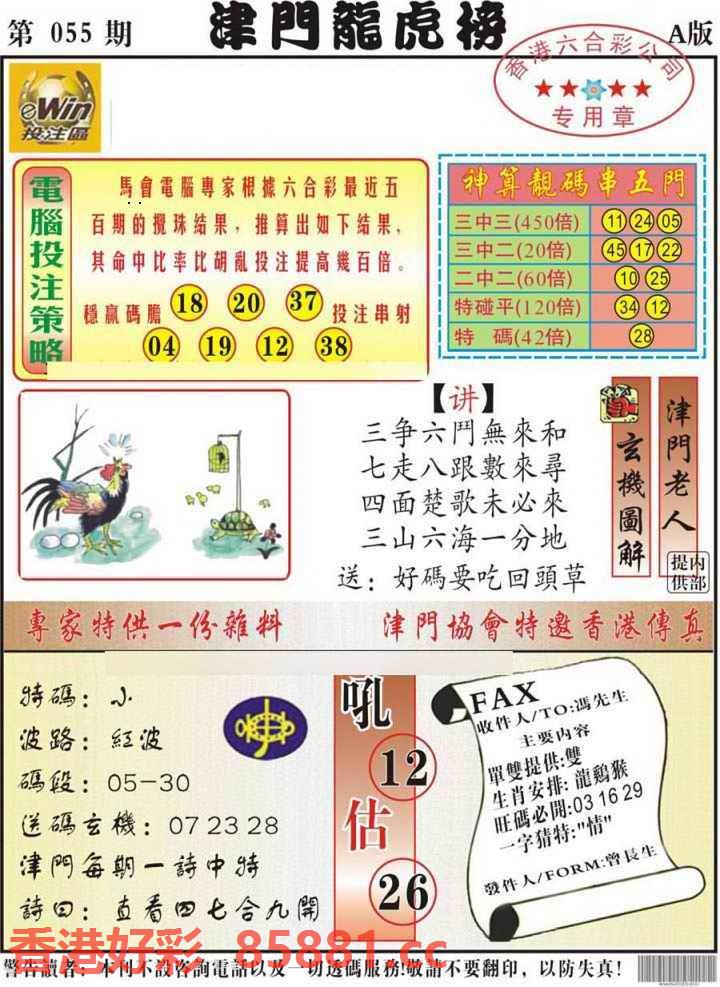 第 055 期
津門龍虎榜
A版
香港六合彩公司
★★★★
专用章
eWin
投注區
電腦投注策略
馬會電腦專家根據六合彩最近五
百期的攪珠結果，推算出如下結果，
其命中比率比胡亂投注提高幾百倍。
穩贏碼膽 18 20 37 投注串射
04 19 12 38
神算靚碼串五門
三中三(450倍) 11 24 05
三中二(20倍) 45 17 22
二中二(60倍) 10 25
特碰平(120倍) 34 12
特 碼(42倍) 28
【讲】
三争六鬥無來和
七走八跟數來尋
四面楚歌未必來
三山六海一分地
送：好碼要吃回頭草
玄機圖解
津門老人
内部提供
專家特供一份雜料
津門協會特邀香港傳真
特碼：小
波路：紅波
碼段：05-30
送碼玄機：07 23 28
津門每期一詩中特
詩曰：直看四七合九開
吼
12
估
26
FAX
收件人/TO:馮先生
主要内容
單雙提供:雙
生肖安排:龍鷄猴
旺碼必開:03 16 29
一字猜特:"情"
發件人/FORM:曾長生
香港好彩 85881.cc
警告讀者：本刊不設咨詢電話以及一切透碼服務!敬請不要翻印，以防失真!